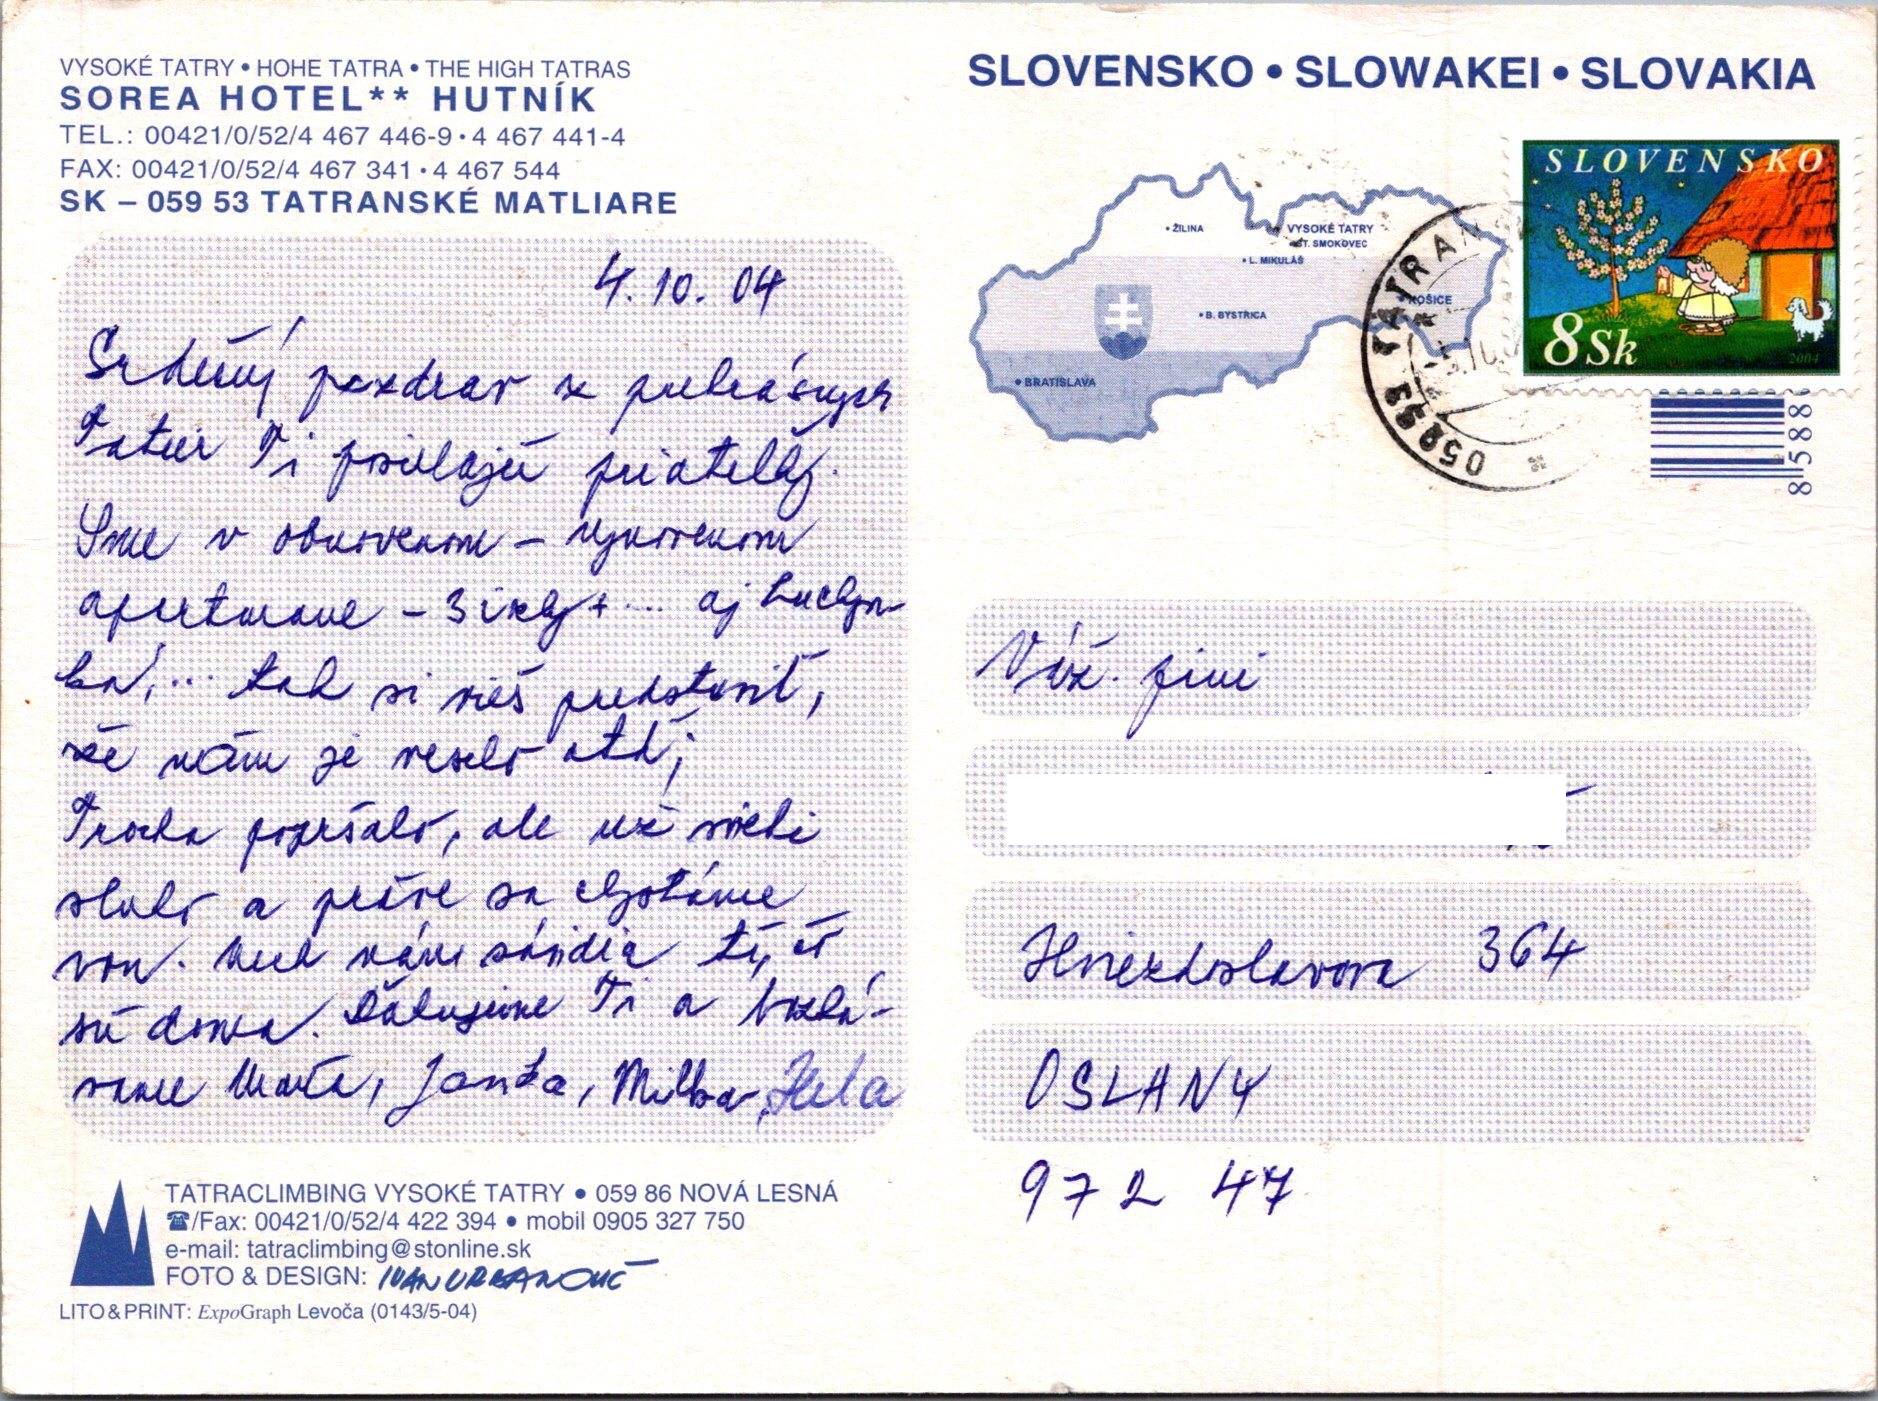 VYSOKÉ TATRY • HOHE TATRA • THE HIGH TATRAS
SOREA HOTEL** HUTNÍK
TEL.: 00421/0/52/4 467 446-9 • 4 467 441-4
FAX: 00421/0/52/4 467 341 • 4 467 544
SK – 059 53 TATRANSKÉ MATLIARE
4. 10. 04
Srdečný pozdrav z prekrásnych
Tatier Ti posielajú priateľky.
Sme v obnovenom – vynovenom
apartmane – 3 izby + ... aj kuchyn-
ka, ... tak si vieš predstaviť,
že nám je veselo atď;
Trocha popršalo, ale už svieti
slnko a práve sa chystáme
von. Nech nám závidia tí, čo
sú doma. Ďakujeme Ti a bozká-
vame Marta, Janka, Milka, Hela
TATRACLIMBING VYSOKÉ TATRY • 059 86 NOVÁ LESNÁ
☎/Fax: 00421/0/52/4 422 394 • mobil 0905 327 750
e-mail: tatraclimbing@stonline.sk
FOTO & DESIGN: IVAN URBANOVIČ
LITO & PRINT: ExpoGraph Levoča (0143/5-04)
SLOVENSKO • SLOWAKEI • SLOVAKIA
• ŽILINA
VYSOKÉ TATRY
• ST. SMOKOVEC
• L. MIKULÁŠ
• KOŠICE
• B. BYSTRICA
• BRATISLAVA
SLOVENSKO
8 Sk
2004
8 588
Váž. pani
Hviezdoslavova 364
OSLANY
972 47